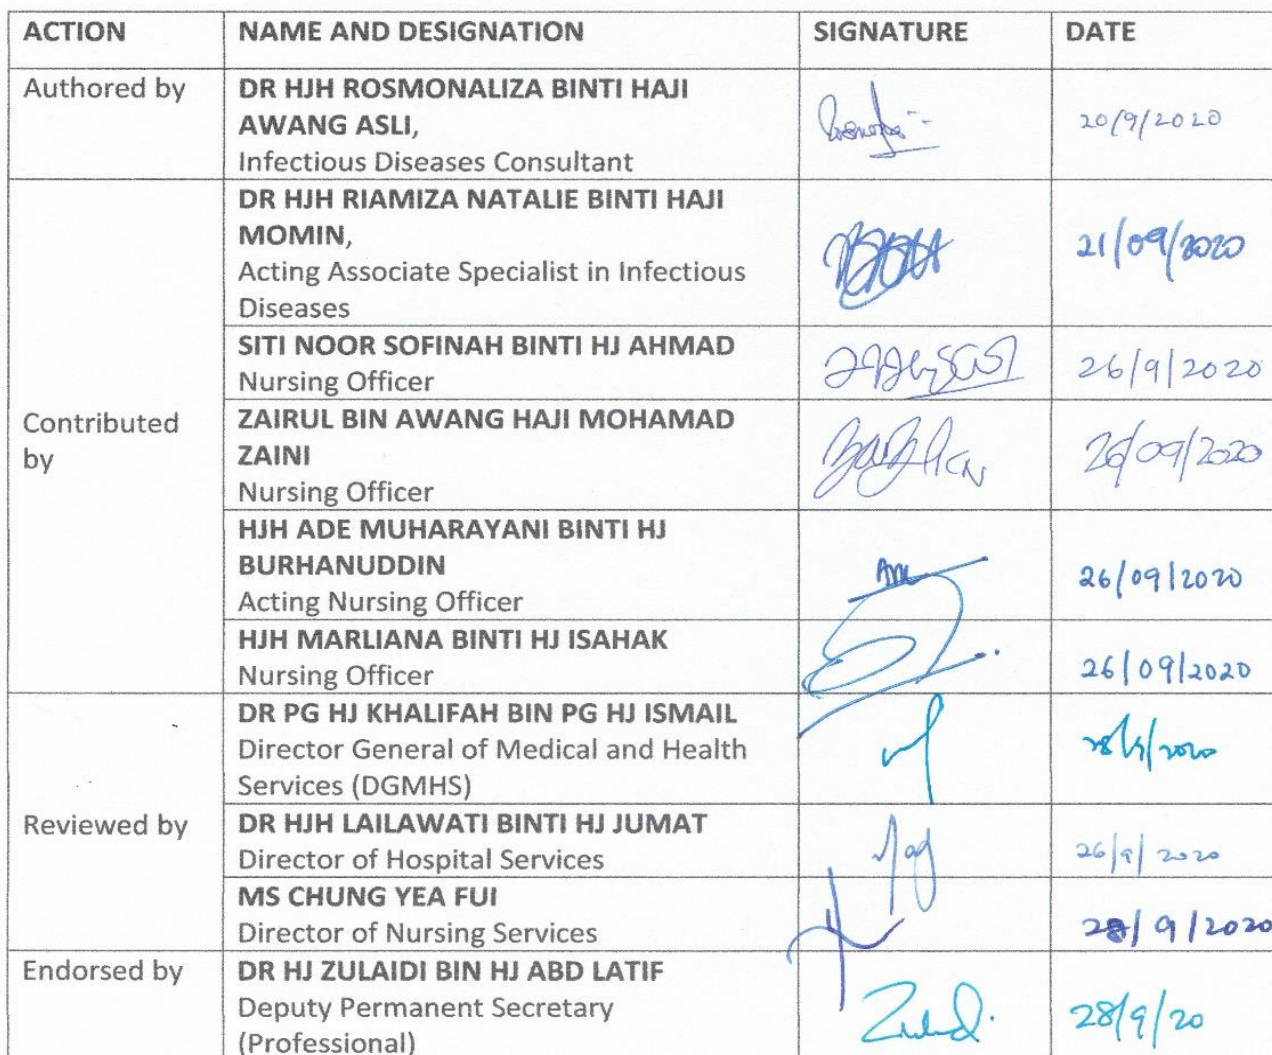 ACTION NAME AND DESIGNATION SIGNATURE DATE
Authored by
DR HJH ROSMONALIZA BINTI HAJI
AWANG ASLI,
Infectious Diseases Consultant
20/9/2020
Contributed
by
DR HJH RIAMIZA NATALIE BINTI HAJI
MOMIN,
Acting Associate Specialist in Infectious
Diseases
21/09/2020
SITI NOOR SOFINAH BINTI HJ AHMAD
Nursing Officer
26/9/2020
ZAIRUL BIN AWANG HAJI MOHAMAD
ZAINI
Nursing Officer
26/09/2020
HJH ADE MUHARAYANI BINTI HJ
BURHANUDDIN
Acting Nursing Officer
26/09/2020
HJH MARLIANA BINTI HJ ISAHAK
Nursing Officer
26/09/2020
Reviewed by
DR PG HJ KHALIFAH BIN PG HJ ISMAIL
Director General of Medical and Health
Services (DGMHS)
28/9/2020
DR HJH LAILAWATI BINTI HJ JUMAT
Director of Hospital Services
26/9/2020
MS CHUNG YEA FUI
Director of Nursing Services
28/9/2020
Endorsed by
DR HJ ZULAIDI BIN HJ ABD LATIF
Deputy Permanent Secretary
(Professional)
28/9/20